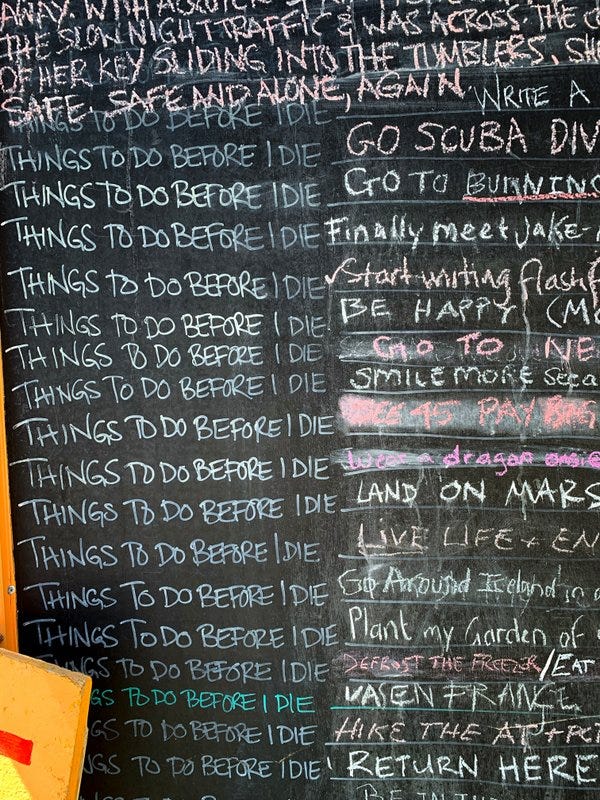 AWAY. WITH
THE SLOW NIGHT TRAFFIC & WAS ACROSS. THE
OF HER KEY SLIDING INTO THE TUMBLERS, SHE
SAFE. SAFE AND ALONE, AGAIN. WRITE A
THINGS TO DO BEFORE I DIE
THINGS TO DO BEFORE I DIE GO SCUBA DIV
THINGS TO DO BEFORE I DIE GO TO BURNING
THINGS TO DO BEFORE I DIE Finally meet Jake-
THINGS TO DO BEFORE I DIE ✓Start writing flashf
THINGS TO DO BEFORE I DIE BE HAPPY (MO
THINGS TO DO BEFORE I DIE GO TO NE
THINGS TO DO BEFORE I DIE SMILE MORE
THINGS TO DO BEFORE I DIE 45 PAY
THINGS TO DO BEFORE I DIE Wear a dragon onsie
THINGS TO DO BEFORE I DIE LAND ON MARS
THINGS TO DO BEFORE I DIE LIVE LIFE + EN
THINGS TO DO BEFORE I DIE Go Around Iceland in a
THINGS TO DO BEFORE I DIE Plant my Garden of
THINGS TO DO BEFORE I DIE DEFROST THE FREEZER/EAT
GS TO DO BEFORE I DIE FRANCE
GS TO DO BEFORE I DIE HIKE THE AT + PCT
GS TO DO BEFORE I DIE RETURN HERE
BE IN